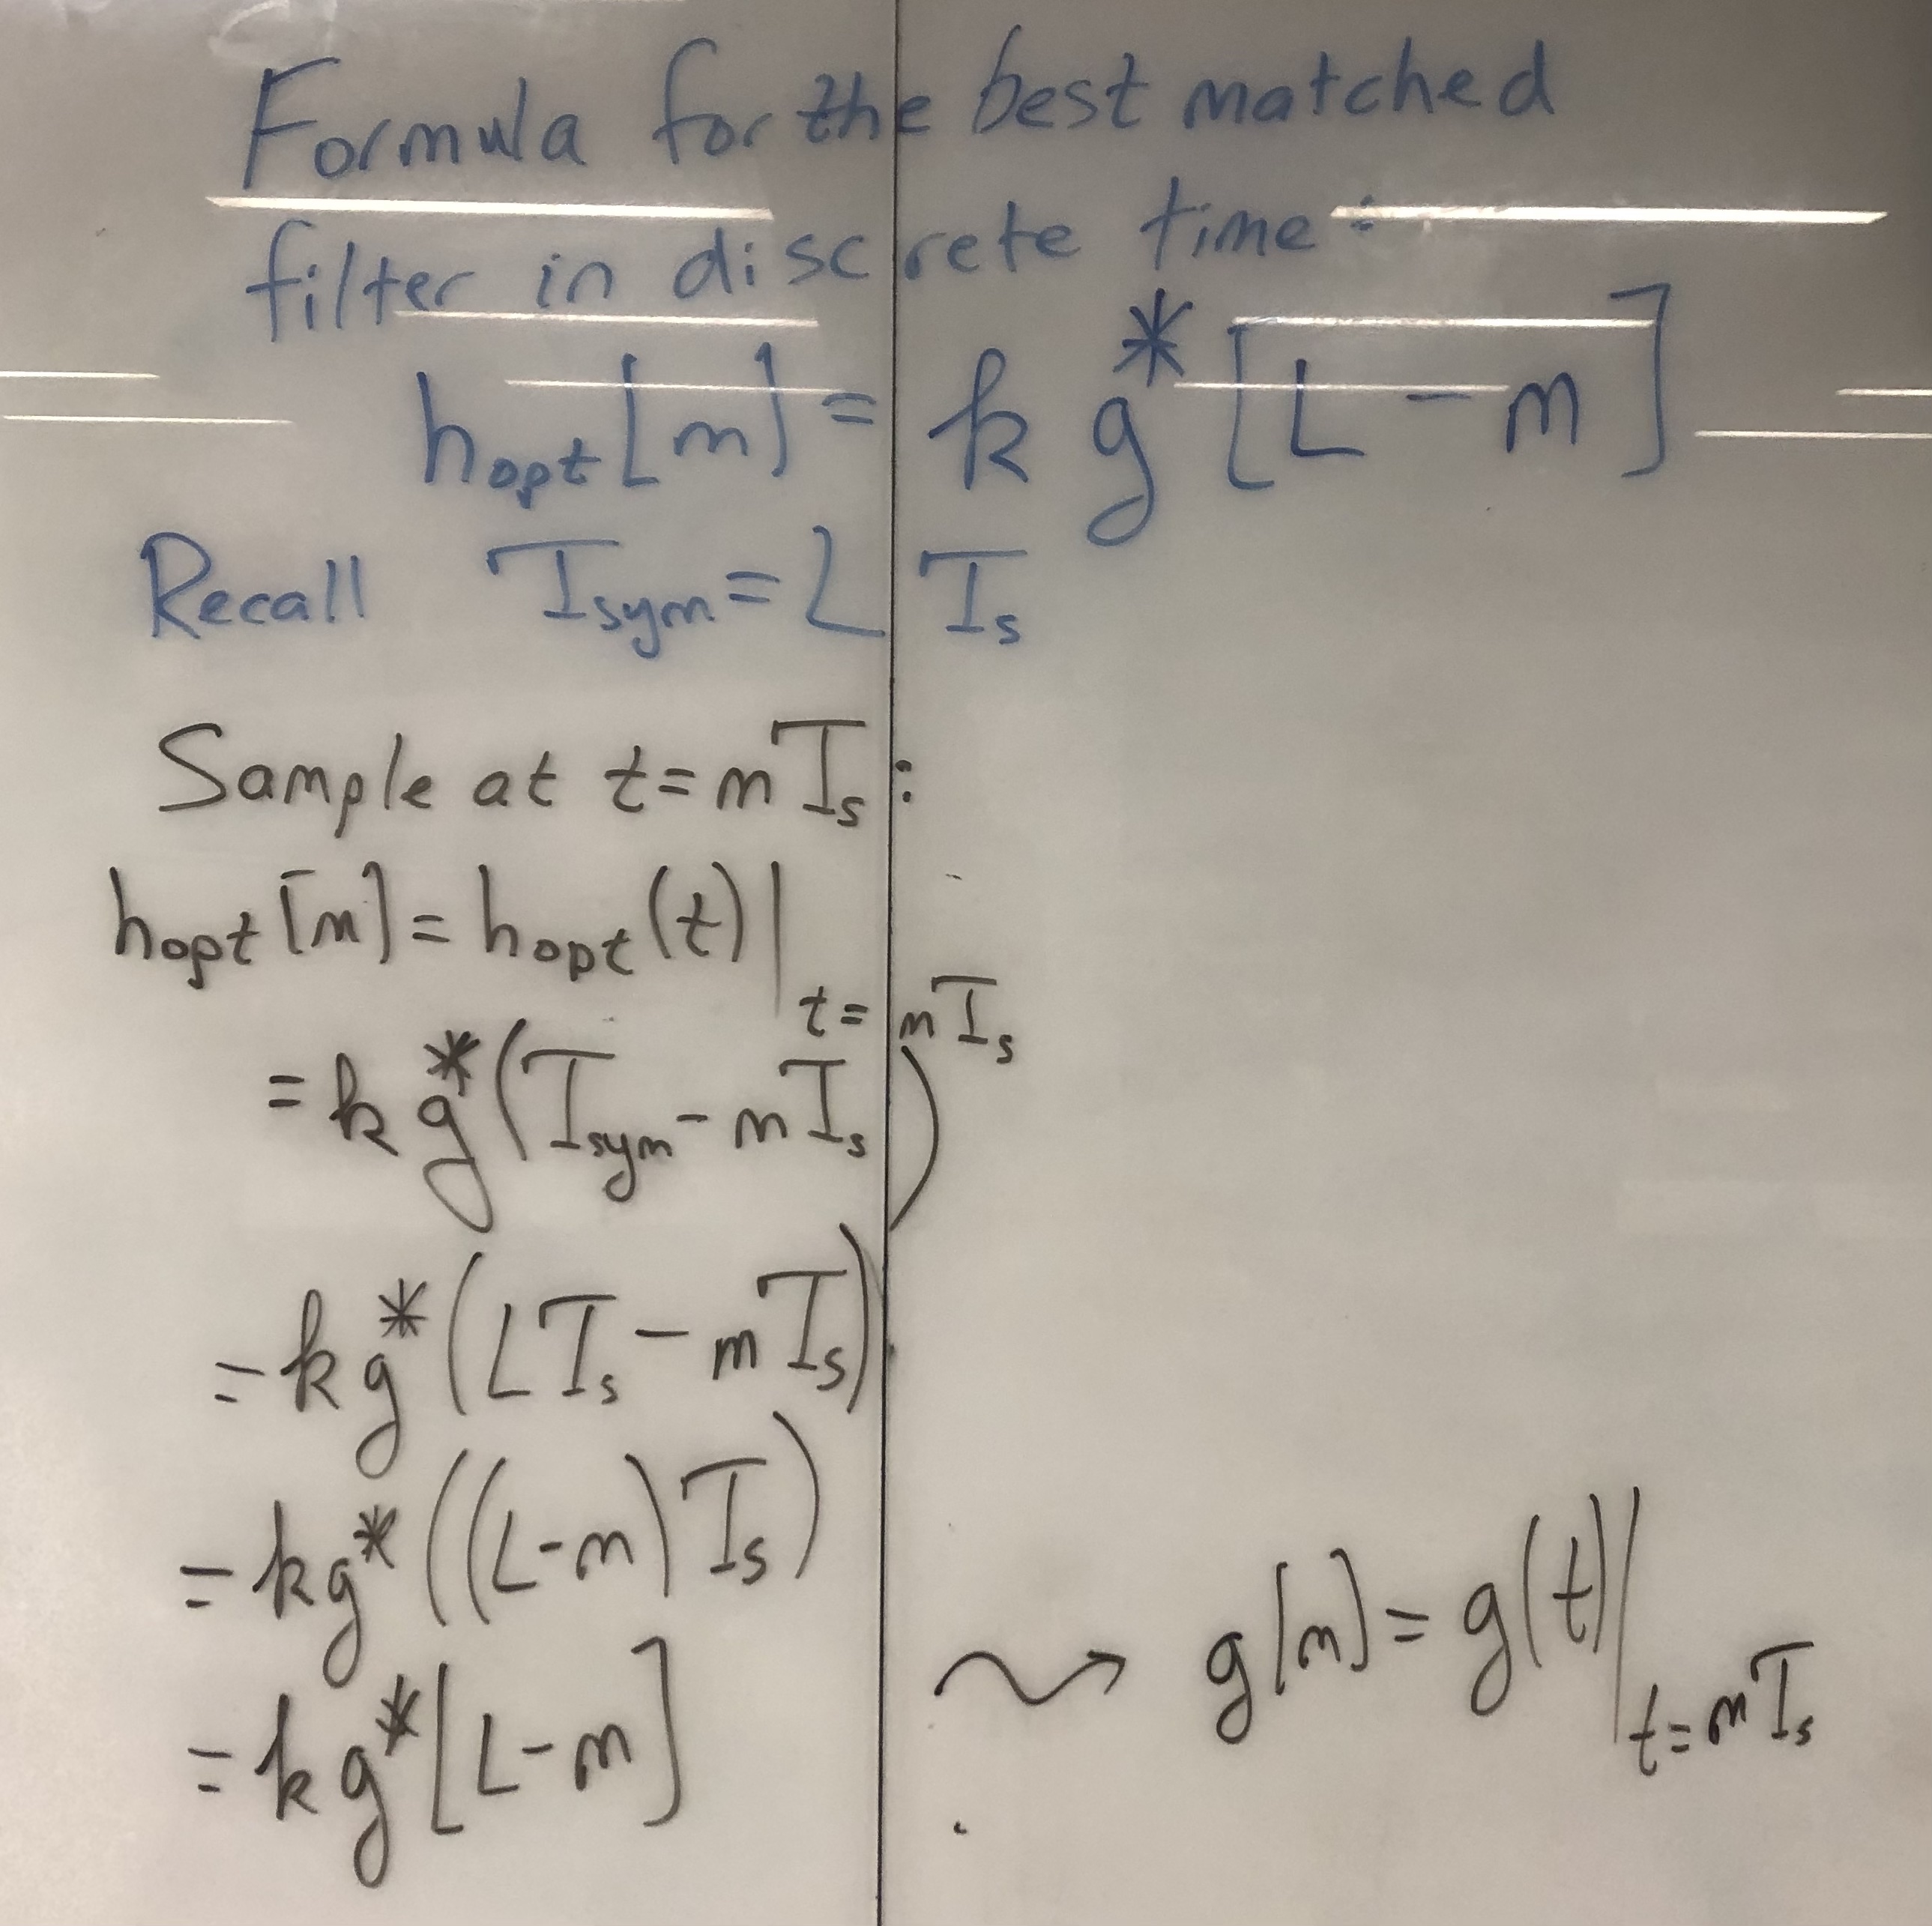 Formula for the best matched
filter in discrete time:
h_opt[m] = k g*[L - m]
Recall T_sym = L T_s
Sample at t = m T_s :
h_opt[m] = h_opt(t)|_{t = m T_s}
= k g*(T_sym - m T_s)
= k g*(L T_s - m T_s)
= k g*((L - m) T_s)
= k g*[L - m] ⇝ g[m] = g(t)|_{t = m T_s}